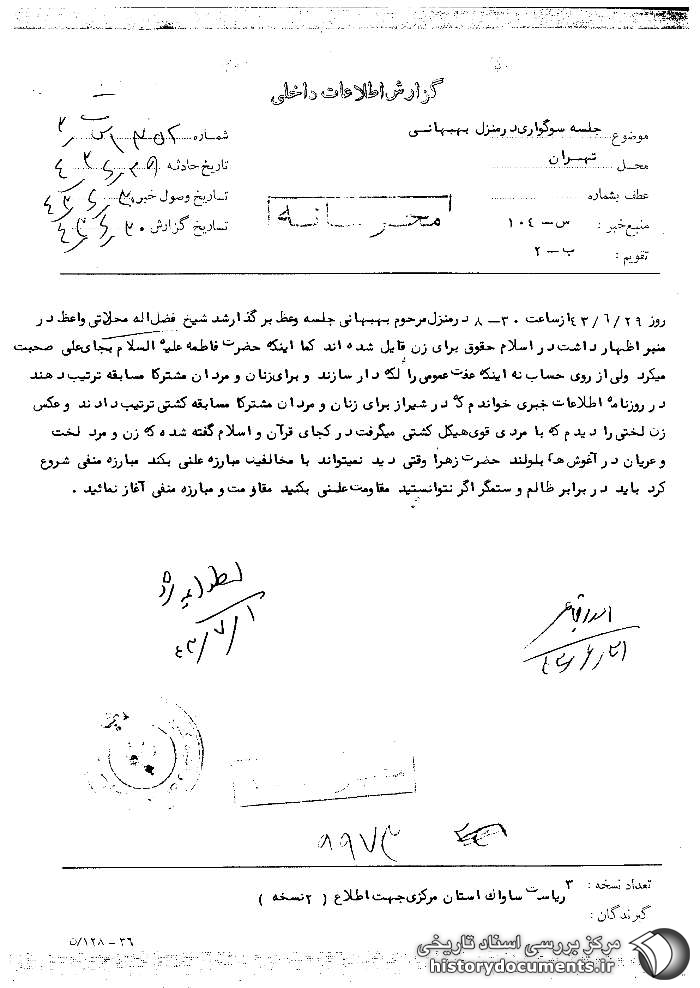 گزارش اطلاعات داخلی
موضوع : جلسه سوگواری درمنزل بهبهانی
شماره
محل : تهران
تاریخ حادثه
عطف بشماره
تاریخ وصول خبر
منبع خبر : س - ۱۰۴
تاریخ گزارش
تقویم : ب - ۲
محرمانه
روز ۴۳/۶/۲۹ از ساعت ۳۰ - ۸ درمنزل مرحوم بهبهانی جلسه وعظ برگذار شد شیخ فضل اله محلاتی واعظ در
منبر اظهار داشت در اسلام حقوق برای زن قایل شده اند کما اینکه حضرت فاطمه علیه السلام بجای علی صحبت
میکرد ولی از روی حساب نه اینکه عفت عمومی را لکه دار سازند و برای زنان و مردان مشترکا مسابقه ترتیب دهند
در روزنامه اطلاعات خبری خواندم که در شیراز برای زنان و مردان مشترکا مسابقه کشتی ترتیب دادند و عکس
زن لختی را دیدم که با مردی قوی هیکل کشتی میگرفت در کجای قرآن و اسلام گفته شده که زن و مرد لخت
و عریان در آغوش هم بلولند حضرت زهرا وقتی دید نمیتواند با مخالفین مبارزه علنی بکند مبارزه منفی شروع
کرد باید در برابر ظالم و ستمگر اگر نتوانستید مقاومت علنی بکنید مقاومت و مبارزه منفی آغاز نمائید .
۴۳/۷/۱
۹۹۷۳
تعداد نسخه : ۳
ریاست ساواک استان مرکزی جهت اطلاع ( ۲ نسخه )
گیرندگان :
۳۶ - ۱۲۸/ن
مرکز بررسی اسناد تاریخی
historydocuments.ir